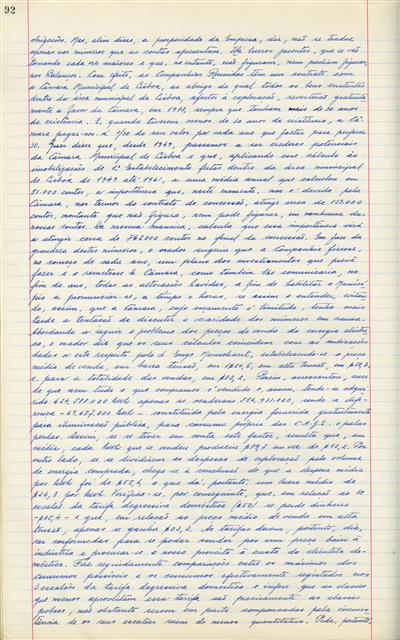 92
obrigações. Mas, além disso, a prosperidade da Empresa, diz, não se traduz
apenas nos números que as contas apresentam. Há lucros jacentes, que se vão
tornando cada vez maiores e que, no entanto, não figuram, nem podiam figurar,
nos Balanços. Com efeito, as Companhias Reunidas têm um contrato com
a Câmara Municipal de Lisboa, ao abrigo do qual todos os bens existentes
dentro da área municipal de Lisboa, afectos à exploração, reverterão gratuita-
mente a favor da Câmara, em 1974, sempre que tenham mais de 30 anos
de existência. E, quando tiverem menos de 30 anos de existência, a Câ-
mara pagar-nos-á 1/30 do seu valor por cada ano que faltar para perfazer
30. Quer dizer que, desde 1949, passamos a ser credores potenciais
da Câmara Municipal de Lisboa e que, aplicando esse cálculo às
imobilizações de 1º Estabelecimento feitas dentro da área municipal
de Lisboa de 1949 até 1961, a uma média anual que calculou de
51.000 contos, a importância que, neste momento, nos é devida pela
Câmara, nos termos do contrato de concessão, atinge cerca de
contos, montante que não figura, nem pode figurar, em nenhuma das
nossas contas. Da mesma maneira, calcula que essa importância virá
a atingir cerca de contos no final da concessão. Em face da
grandeza destes números, o orador sugeriu que a Companhia fizesse,
no começo de cada ano, um plano dos investimentos que previa
fazer e o remetesse à Câmara, como também lhe comunicaria, no
fim do ano, todas as alterações havidas, a fim de habilitar o Municí-
pio a pronunciar-se, a tempo e horas, se assim o entender, evitan-
do, assim, que a Câmara, cujo orçamento é limitado, tenha mais
tarde a tentação de discutir a veracidade dos números em causa.
Abordando a seguir o problema dos preços de venda da energia eléctri-
ca, o orador diz que os seus cálculos coincidem com as indicações
dadas a este respeito pelo Sr. Engº , estabelecendo-se o preço
médio de venda, em baixa tensão, em , em alta tensão, em
e, para a totalidade das vendas, em . Porém, acrescentou, mas
de que nem tudo o que compramos é vendido e assim, tendo-se adqui-
rido kWh apenas se venderam , sendo a dife-
rença kWh - constituída pela energia fornecida gratuitamente
para iluminação pública, para consumo próprio das C.R.G.E. e pelas
perdas. Assim, se se tiver em conta este facto, resulta que, em
média, cada kWh que se vendeu produziu em vez de . Por
outro lado, se se dividirem as despesas de exploração pelo volume
de energia comprada, chega-se à conclusão de que a despesa média
por kWh foi de o que dá, portanto, um lucro médio de
por kWh. Verifica-se, por conseguinte, que, em relação ao 3º
escalão da tarifa degressiva doméstica se perde dinheiro
e que, em relação ao preço médio de venda em alta
tensão, apenas se ganha . As tarifas devem, portanto, diz,
ser conformadas para se poder vender por um preço baixo à
indústria e procurar-se o nosso proveito à custa da clientela do-
méstica. Faz seguidamente comparações entre os máximos dos
consumos possíveis e os consumos efectivamente registados nos
3 escalões da tarifa degressiva doméstica e infere que as classes
que menos aproveitam essa tarifa são precisamente as classes
pobres, não obstante serem em parte compensadas pela circuns-
tância de os seus escalões serem de menor quantitativo. Pede, portanto,